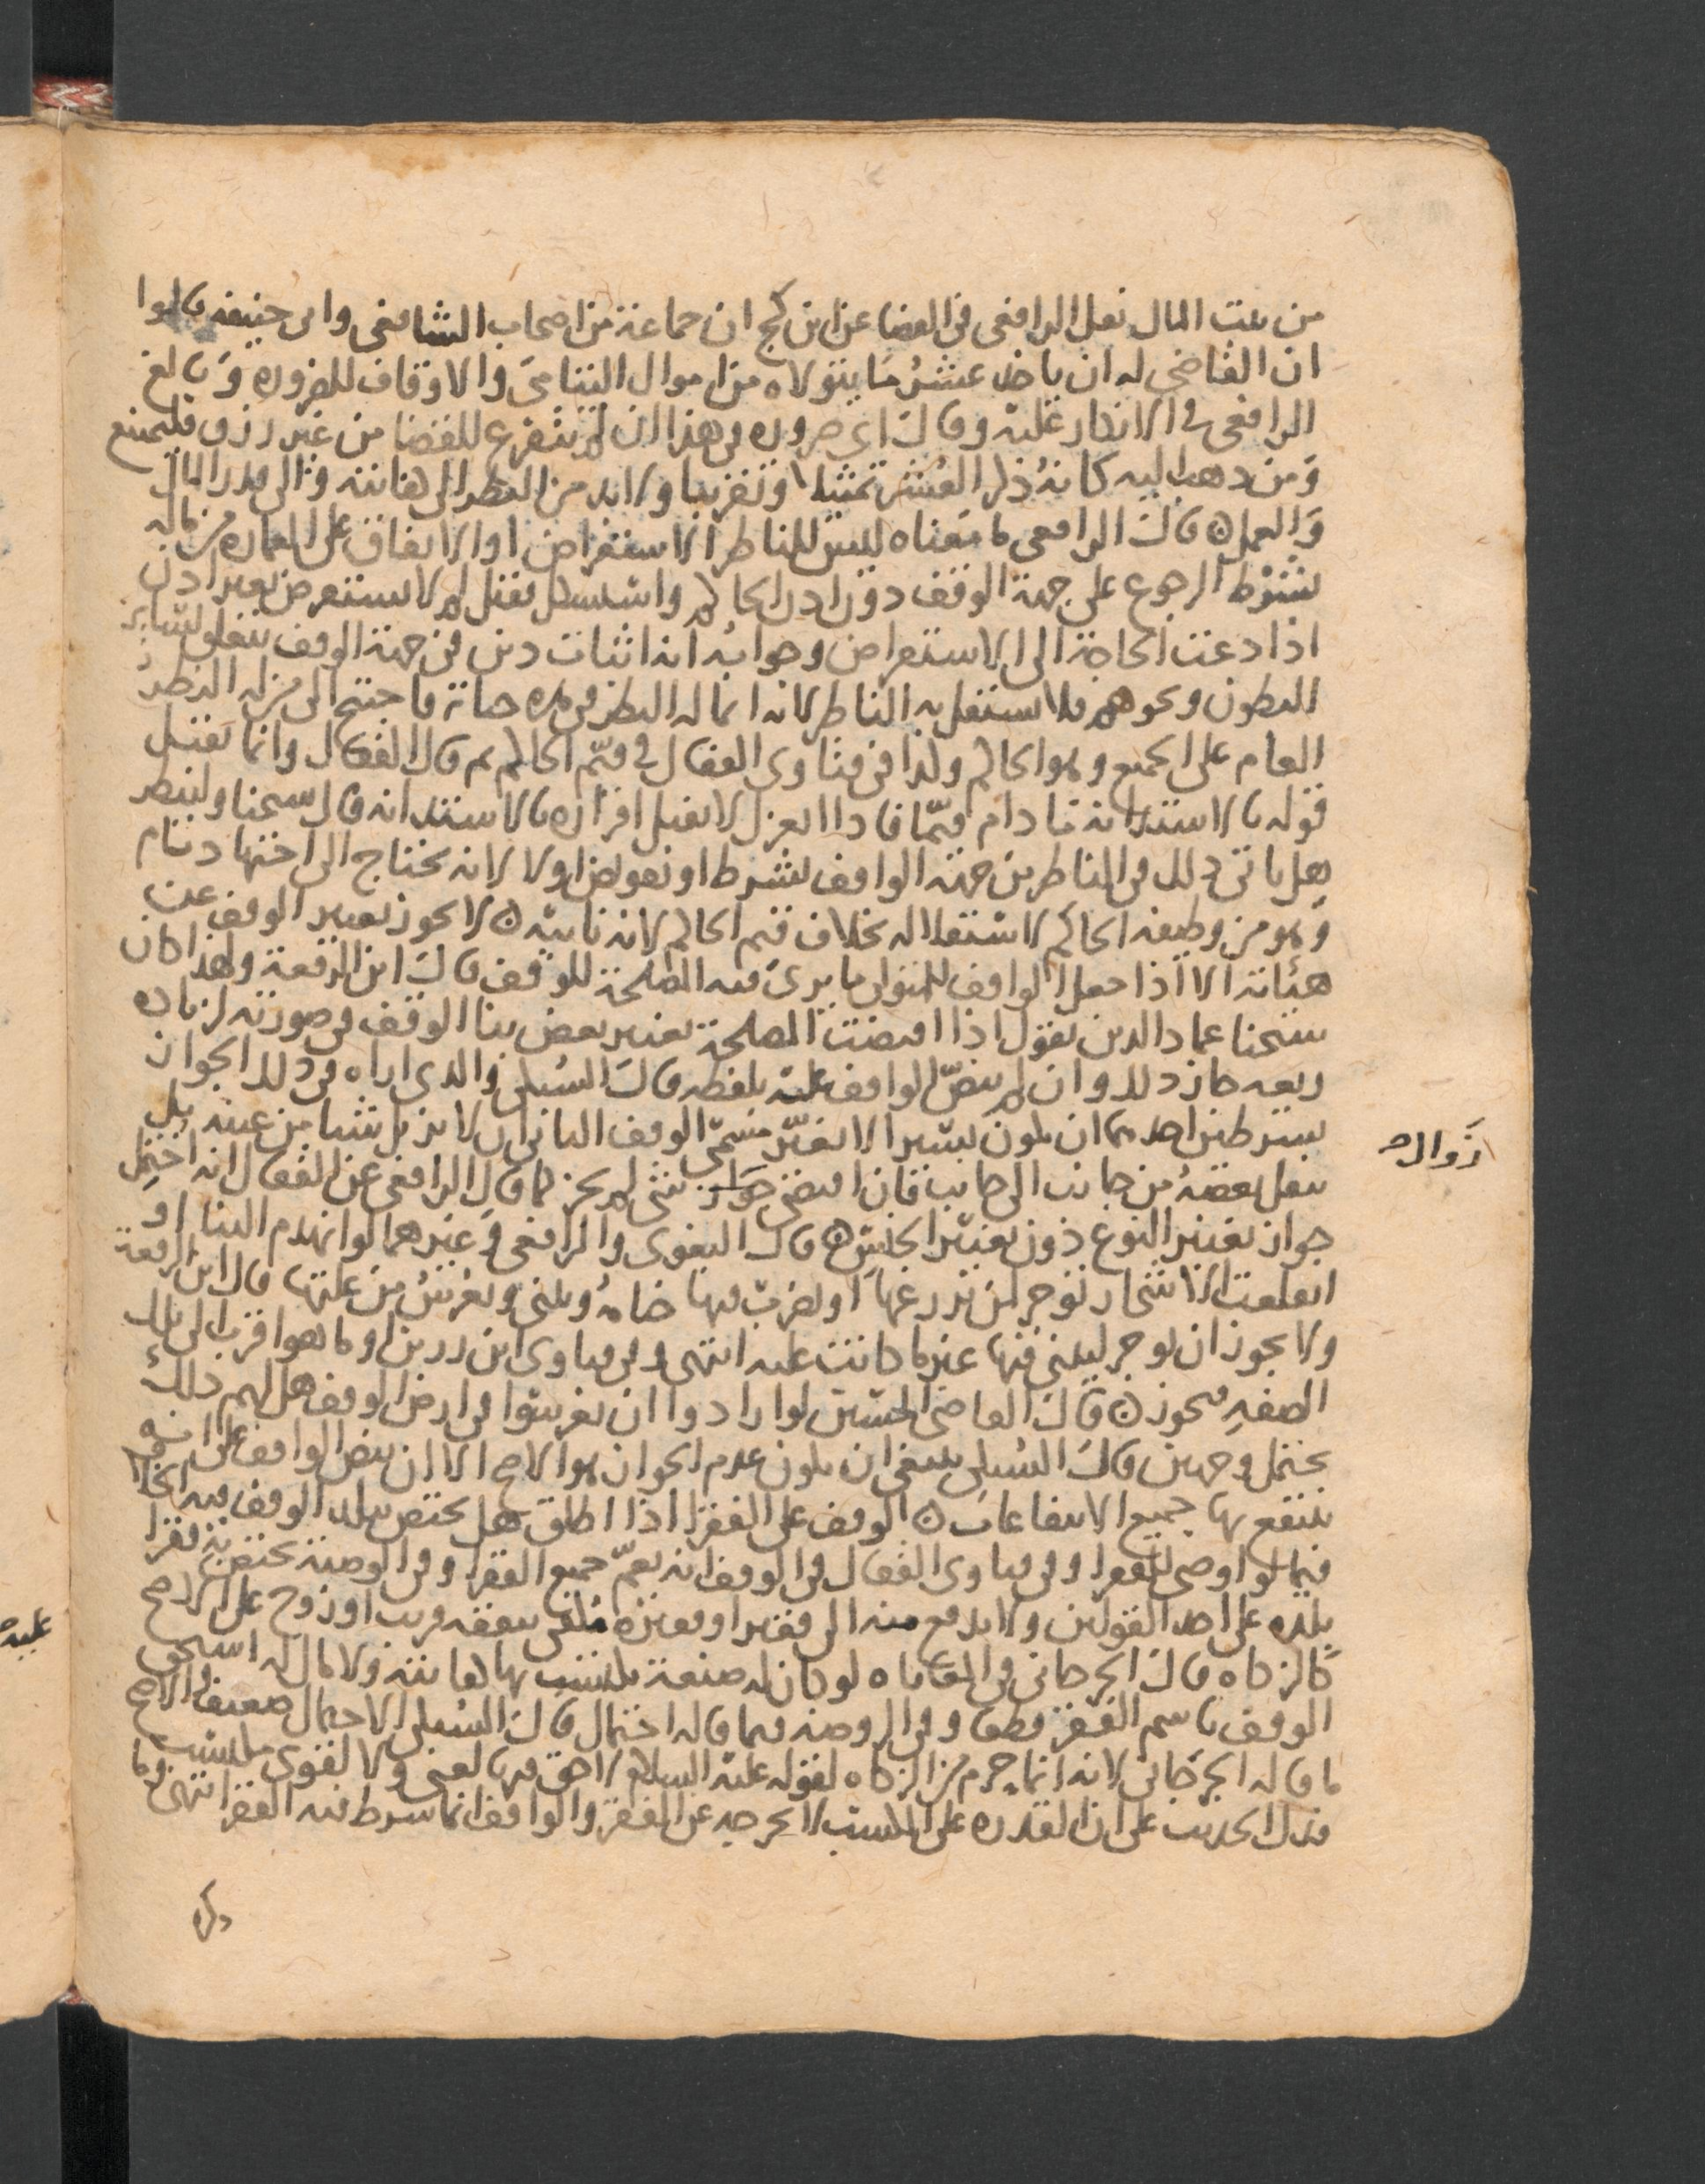 من بيت المال نقل الرافعي في القضا عن ابن كج ان جماعة من اصحاب الشافعي وابي حنيفه قالوا
ان القاضي له ان ياخذ عشر ما يتولاه من اموال اليتامي والاوقاف للضروره وبالغ
الرافعي في الانكار عليه وقال اي ضروره في هذا ان لم يتفرع للقضا من غير رزق فليمتنع
ومن ذهب اليه كانه ذكر العشر تمثيلا وتقريبا ولا بد من النظر الى كفايته والى قدر المال
والعمل ه قال الرافعي ما معناه ليس للناظر الاستقراض او الانفاق على العماره من ماله
بشرط الرجوع على جهة الوقف دون اذن الحاكم واستشكل فقيل لم لا يستقرض بغير اذن
اذا دعت الحاجة الى الاستقراض وجوابه انه اثبات دين في جهة الوقف يتعلق بساير
البطون ونحوهم فلا يستقل به الناظر لانه انما له النظر في مده حياته فاحتيج الى من له النظر
العام على الجميع وهو الحاكم ولذا في فتاوى القفال في قيم الحاكم ثم قال القفال وانما يقبل
قوله بالاستدانه ما دام قيما فاذا انعزل لا يقبل اقراره بالاستدانه قال شيخنا ولينظر
هل ياتي ذلك في الناظر من جهة الواقف بشرط او تفويض اولا لانه يحتاج الى اجتهاد تام
وهو من وظيفه الحاكم لاستقلاله بخلاف قيم الحاكم لانه نائبه ه لا يجوز تغيير الوقف عن
هيأته الا اذا جعل الواقف للمتولي ما يرى فيه المصلحة للوقف قال ابن الرفعة ولهذا كان
شيخنا عماد الدين يقول اذا اقتضت المصلحة تغيير بعض بنا الوقف في صورته لزياده
ريعه جاز ذلك وان لم ينص الواقف عليه بلفظه قال السبكي والذي اراه في ذلك الجواز
بشرطين احدهما ان يكون يسيرا لا يغير مسمى الوقف الثاني ان لا يزيل شيا من عينه بل
ينقل بعضه من جانب الى جانب فان اقتضى جواز شي لم يجز كما قال الرافعي عن القفال انه احتمل
زواله
جواز تغيير النوع دون تغيير الجنس ه قال البغوي والرافعي وغيرهما لو انهدم البنا او
انقلعت الاشجار توجر لمن يزرعها او يضرب فيها خيامه ويبني ويغرس من غلتها قال ابن الرفعة
ولا يجوز ان توجر ليبني فيها غير ما كانت عليه انتهى وفي فتاوى ابن رزين او ما هو اقرب الى تلك
الصفه فيجوز ه قال القاضي الحسين لو ارادوا ان يغرسوا في ارض الوقف هل لهم ذلك
يحتمل وجهين قال السبكي ينبغي ان يكون عدم الجواز هو الاصح الا ان ينص الواقف على انه
ينتفع بها جميع الانتفاعات ه الوقف على الفقرا اذا اطلق هل يختص ببلد الوقف فيه الخلاف
فيما لو اوصى للفقرا وفي فتاوى القفال في الوقف انه يعم جميع الفقرا وفي الوصية يختص به فقرا
بلده على احد القولين ولا يدفع منه الى فقير او فقيره مكفي بنفقه قريب او زوج على الاصح
كالزكاه قال الجرجاني في المعاياه لو كان له صنعة يكتسب بها كفايته ولا مال له استحق
الوقف باسم الفقر قطعا وفي الروضه فيما قاله احتمال قال السبكي الاحتمال ضعيف والاصح
ما قاله الجرجاني لانه انما حرم من الزكاه لقوله عليه السلام لا حق فيها لغني ولا لقوي مكتسب
فدل الحديث على ان القدره على الكسب لا تخرجه عن الفقر والواقف انما شرط فيه الفقر انتهى وما
ذكره